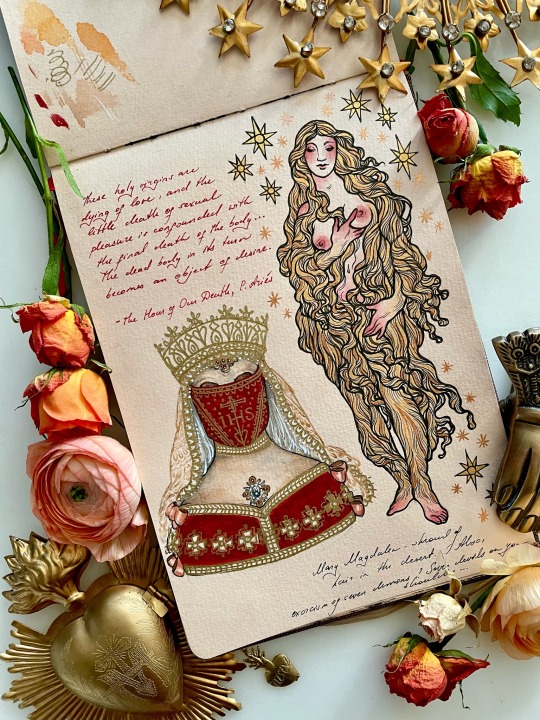 These holy virgins are
dying of love, and the
little death of sexual
pleasure is compounded with
the final death of the body...
The dead body in its turn
becomes an object of desire.
-The Hour of Our Death, P. Ariès
IHS
Mary Magdalen - shroud of
hair in the desert. Also,
exorcism of seven demons. Seven devils on your
shoulder...